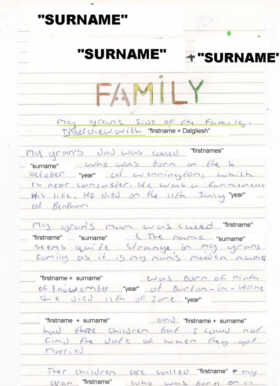 "SURNAME"
"SURNAME"
+ "SURNAME"
FAMILY
My gran's side of the family.
Interview with "firstname + Dalgliesh"
My gran's dad was called "firstnames"
"surname" who was born on the 6
October "year" at Wennington, which
is near Lancaster. He was a farm
His life. He died on the 11th "year"
at Bentham
My gran's mum was called "firstname"
"firstname" "surname" (The name "surname"
seems quite strange in my grans
family as it is my mum's maiden name
"firstname + surname" was born of ninth
of November "year" at Burton-in-
She died 11th of June "year"
"firstname + surname" and "firstname + surname"
had three children but I could not
find the date of when they got
married
Their children are called "firstname"
gran "firstname" who was born on